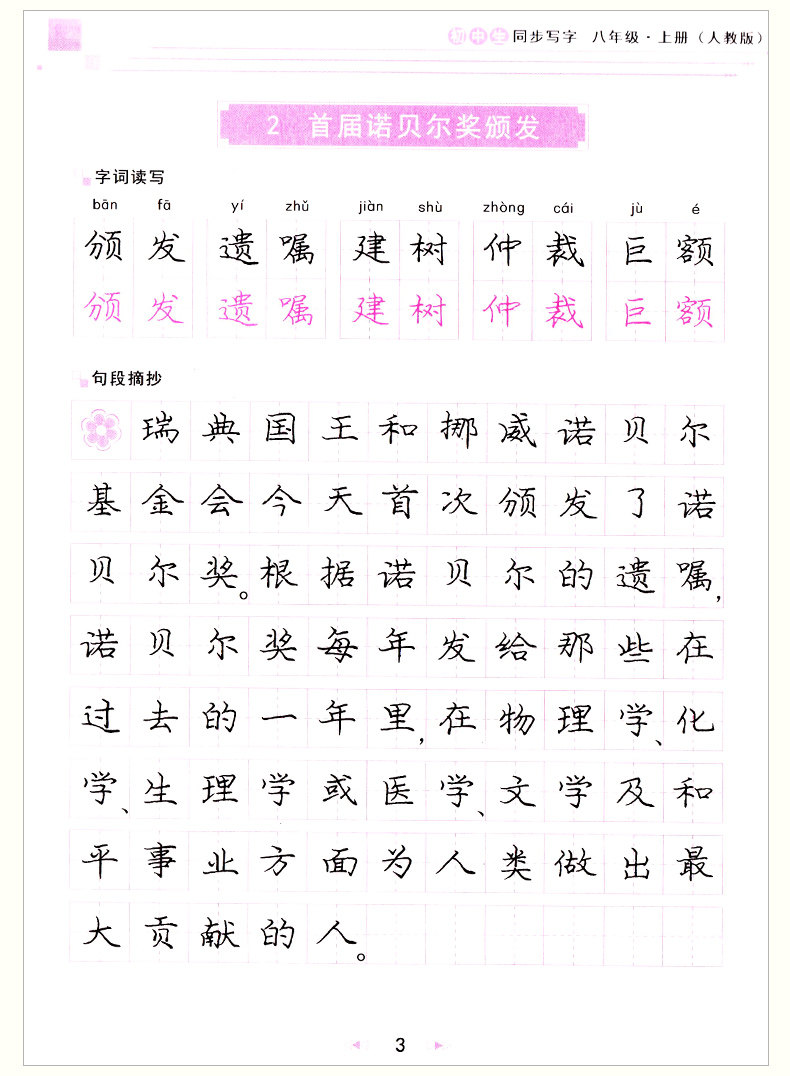 初中生 同步写字 八年级·上册（人教版）
2 首届诺贝尔奖颁发
字词读写
bān fā yí zhǔ jiàn shù zhòng cái jù é
颁发 遗嘱 建树 仲裁 巨额
颁发 遗嘱 建树 仲裁 巨额
句段摘抄
瑞典国王和挪威诺贝尔
基金会今天首次颁发了诺
贝尔奖。根据诺贝尔的遗嘱，
诺贝尔奖每年发给那些在
过去的一年里，在物理学、化
学、生理学或医学、文学及和
平事业方面为人类做出最
大贡献的人。
3